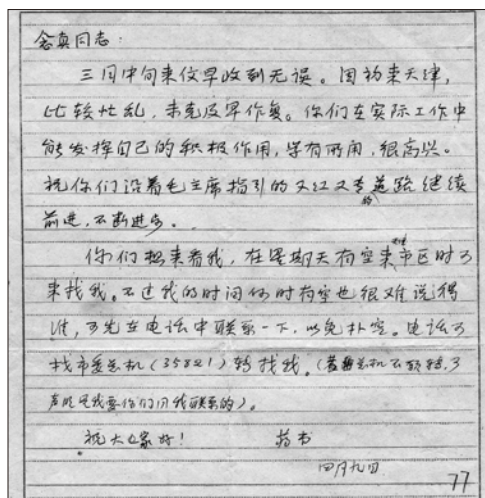 念真同志：
三月中旬来信早收到无误。因初来天津，
比较忙乱，未克及早作复。你们在实际工作中
能发挥自己的积极作用，学有所用，很高兴。
祝你们沿着毛主席指引的又红又专的道路继续
前进，不断进步。
你们想来看我，在星期天有空来市区时可
来找我。不过我的时间何时有空也很难说得
准，可先在电话中联系一下，以免扑空。电话可
找市委总机（35821）转找我。（若总机不愿转，可
声明是我要你们同我联系的）。
祝大家好！
四月九日
77